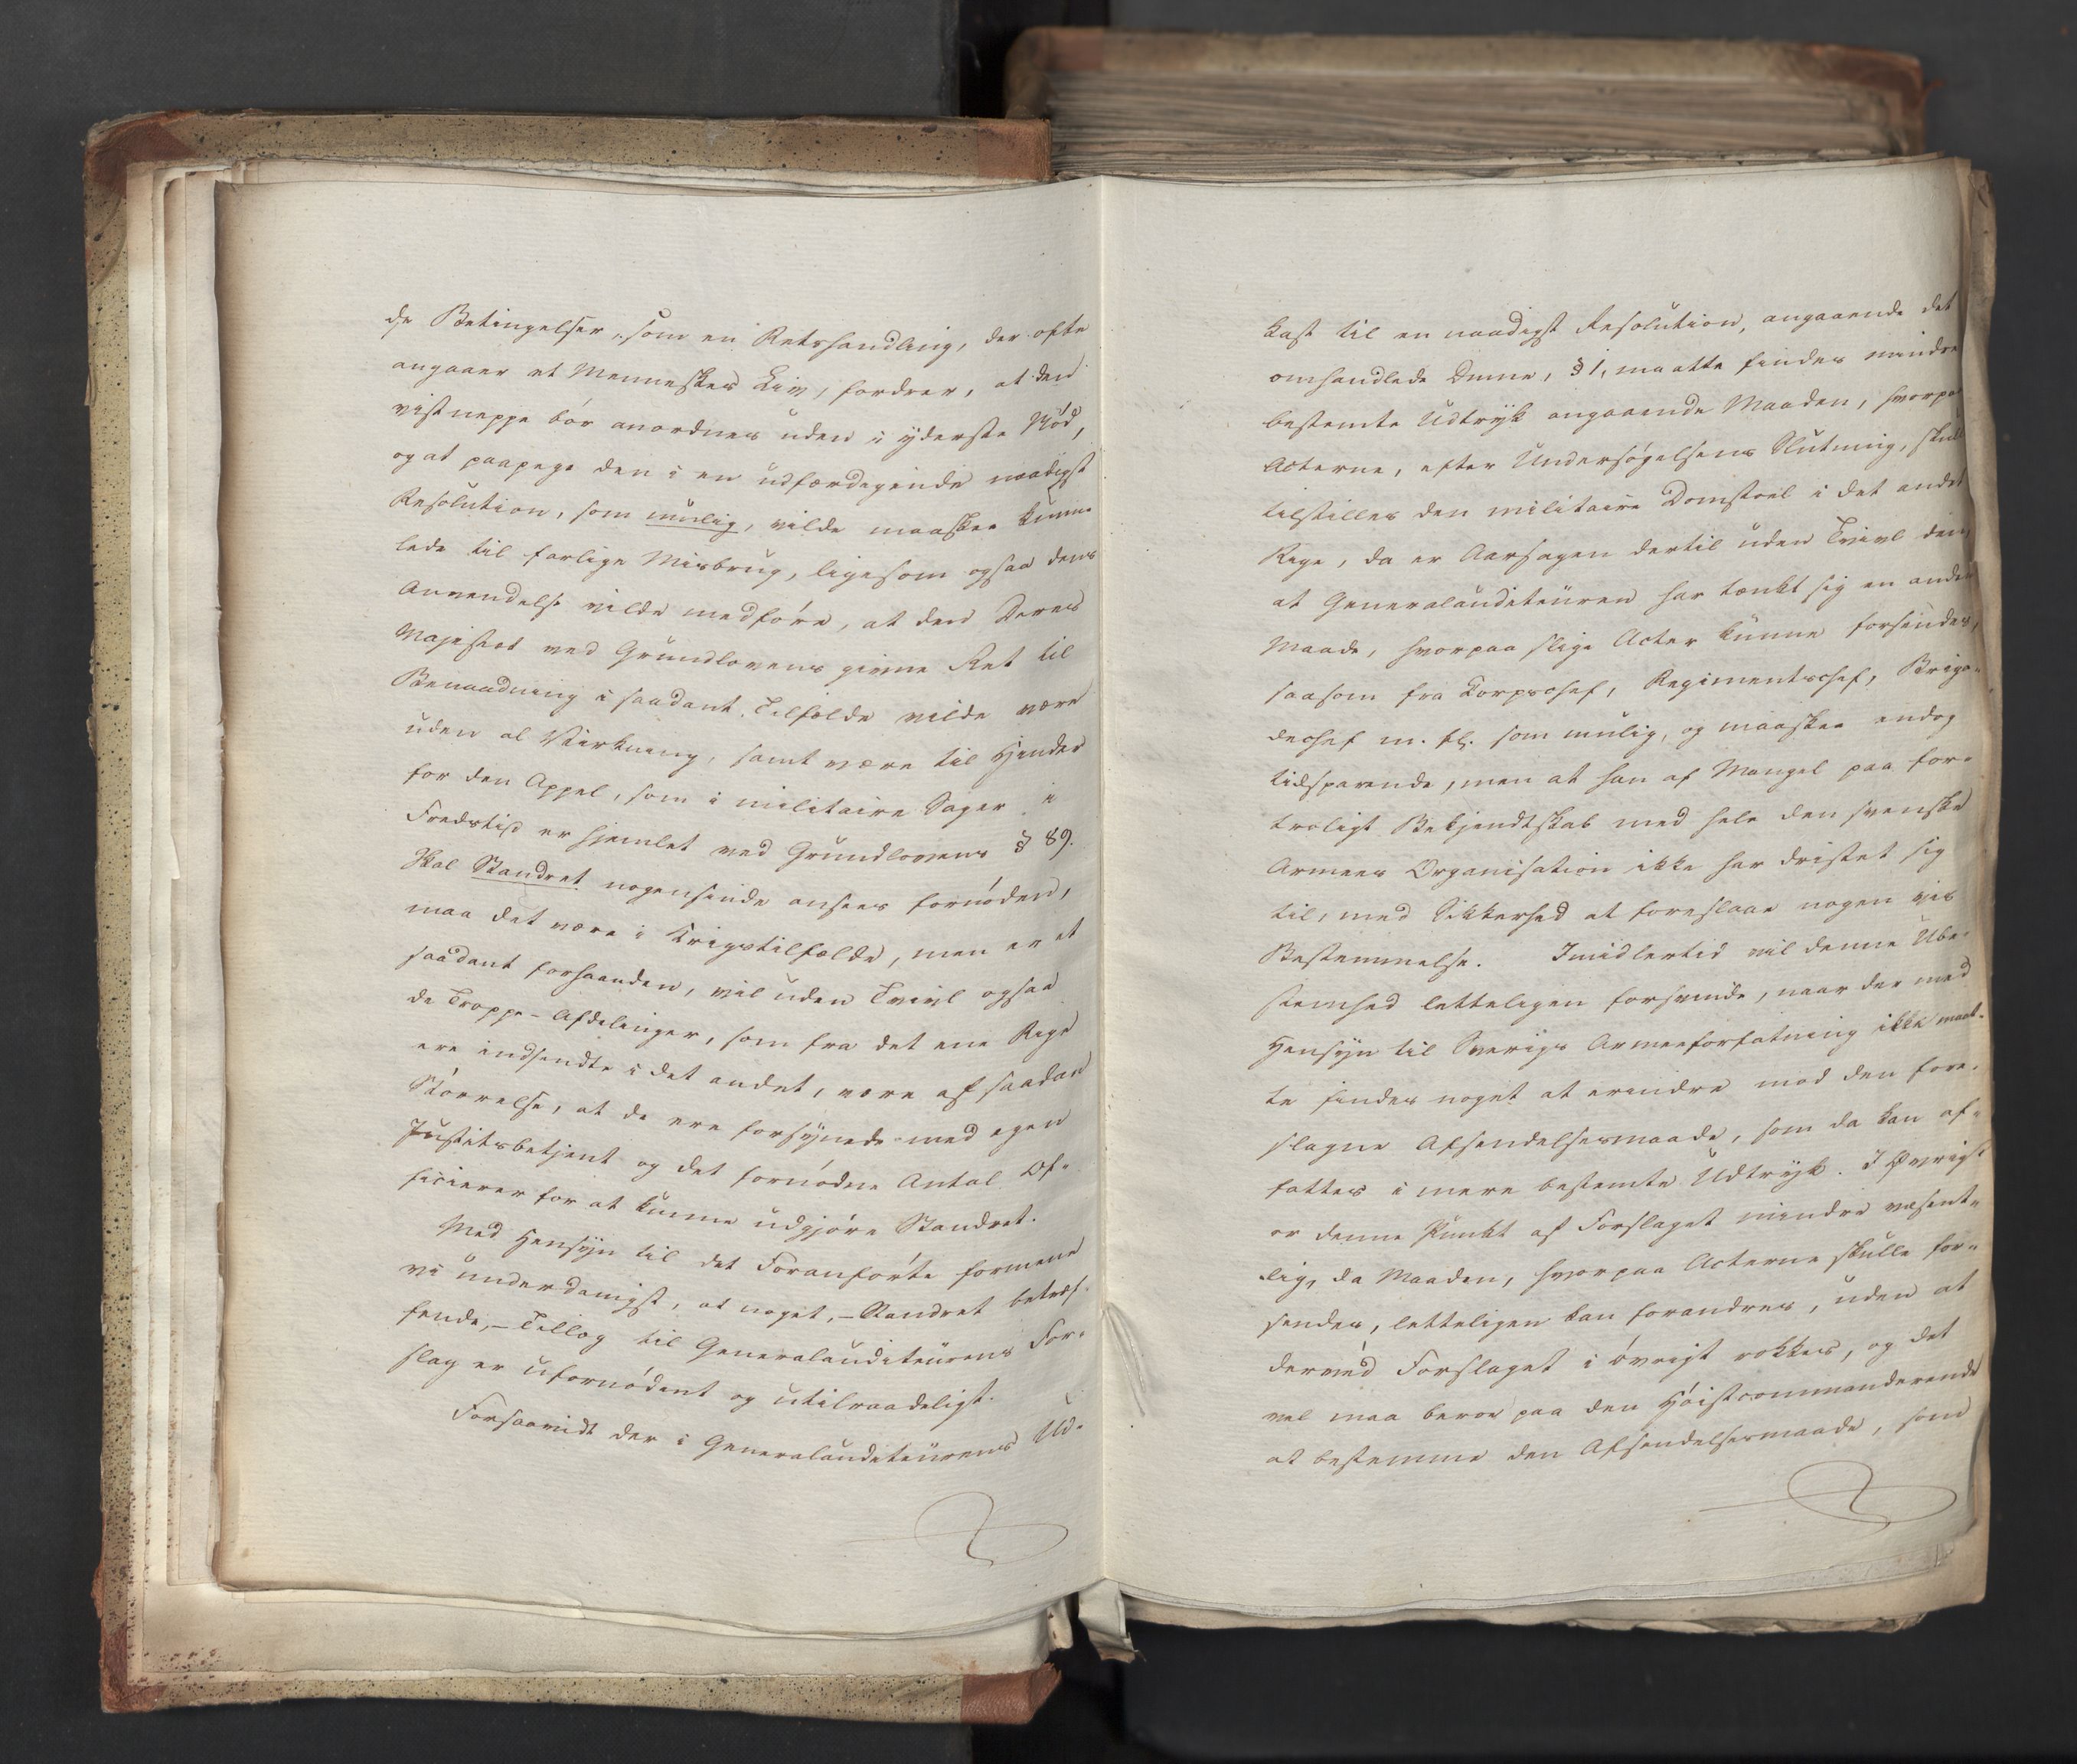 de Betingelser, som en Retshandling, der ofte
angaaer et Menneskes Liv, fordrer, at den
vist neppe bör anordnes uden i yderste Nöd,
og at paapege den i en udfærdigende naadigst
Resolution, som mulig, vilde maaskee kunne
lede til farlige Misbrug, ligesom ogsaa dens
Anvendelse vilde medföre, at den Deres
Majestæt ved Grundlovens givne Ret til
Benaadning i saadant Tilfælde vilde være
uden al Virkning, samt være til Hinder
for den Appel, som i militaire Sager i
Fredstid er hjemlet ved Grundlovens § 89.
Skal Standret nogensinde ansees fornöden,
maa det være i Krigstilfælde, men er et
saadant forhaanden, vil uden Tvivl ogsaa
de Troppe-Afdelinger, som fra det ene Rige
ere indsendte i det andet, være af saadan
Störrelse, at de ere forsynede med egen
Justitsbetjent og det fornödne Antal Of-
ficierer for at kunne udgjöre Standret.
Med Hensyn til det Foranförte formene
vi underdanigst, at noget, - Standret betræf-
fende, - Tillæg til Generalauditeurens For-
slag er ufornödent og utilraadeligt.
Forsaavidt der i Generalauditeurens Ud-
kast til en naadigst Resolution, angaaende det
omhandlede Emne, § 1, maatte findes mindre
bestemte Udtryk angaaende Maaden, hvorpaa
Acterne, efter Undersögelsens Slutning, skulle
tilstilles den militaire Domstoel i det andet
Rige, da er Aarsagen dertil uden Tvivl den,
at Generalauditeuren har tænkt sig en anden
Maade, hvorpaa slige Acter kunne forsendes,
saasom fra Corpschef, Regimentschef, Briga-
dechef m. fl. som mulig, og maaskee endog
tidsparende, men at han af Mangel paa for-
troligt Bekjendtskab med hele den svenske
Armees Organisation ikke har dristet sig
til, med Sikkerhed at foreslaae nogen vis
Bestemmelse. Imidlertid vil denne Ube-
stemthed letteligen forsvinde, naar der med
Hensyn til Sverigs Armeeforfatning ikke maat-
te findes noget at erindre mod den fore-
slagne Afsendelsesmaade, som da kan af-
fattes i mere bestemte Udtryk. I Øvrigt
er denne Punkt af Forslaget mindre væsent-
lig, da Maaden, hvorpaa Acterne skulle for-
sendes, letteligen kan forandres, uden at
derved Forslaget i övrigt rokkes, og det
vel maa beroe paa den Höistcommanderende
at bestemme den Afsendelsesmaade, som